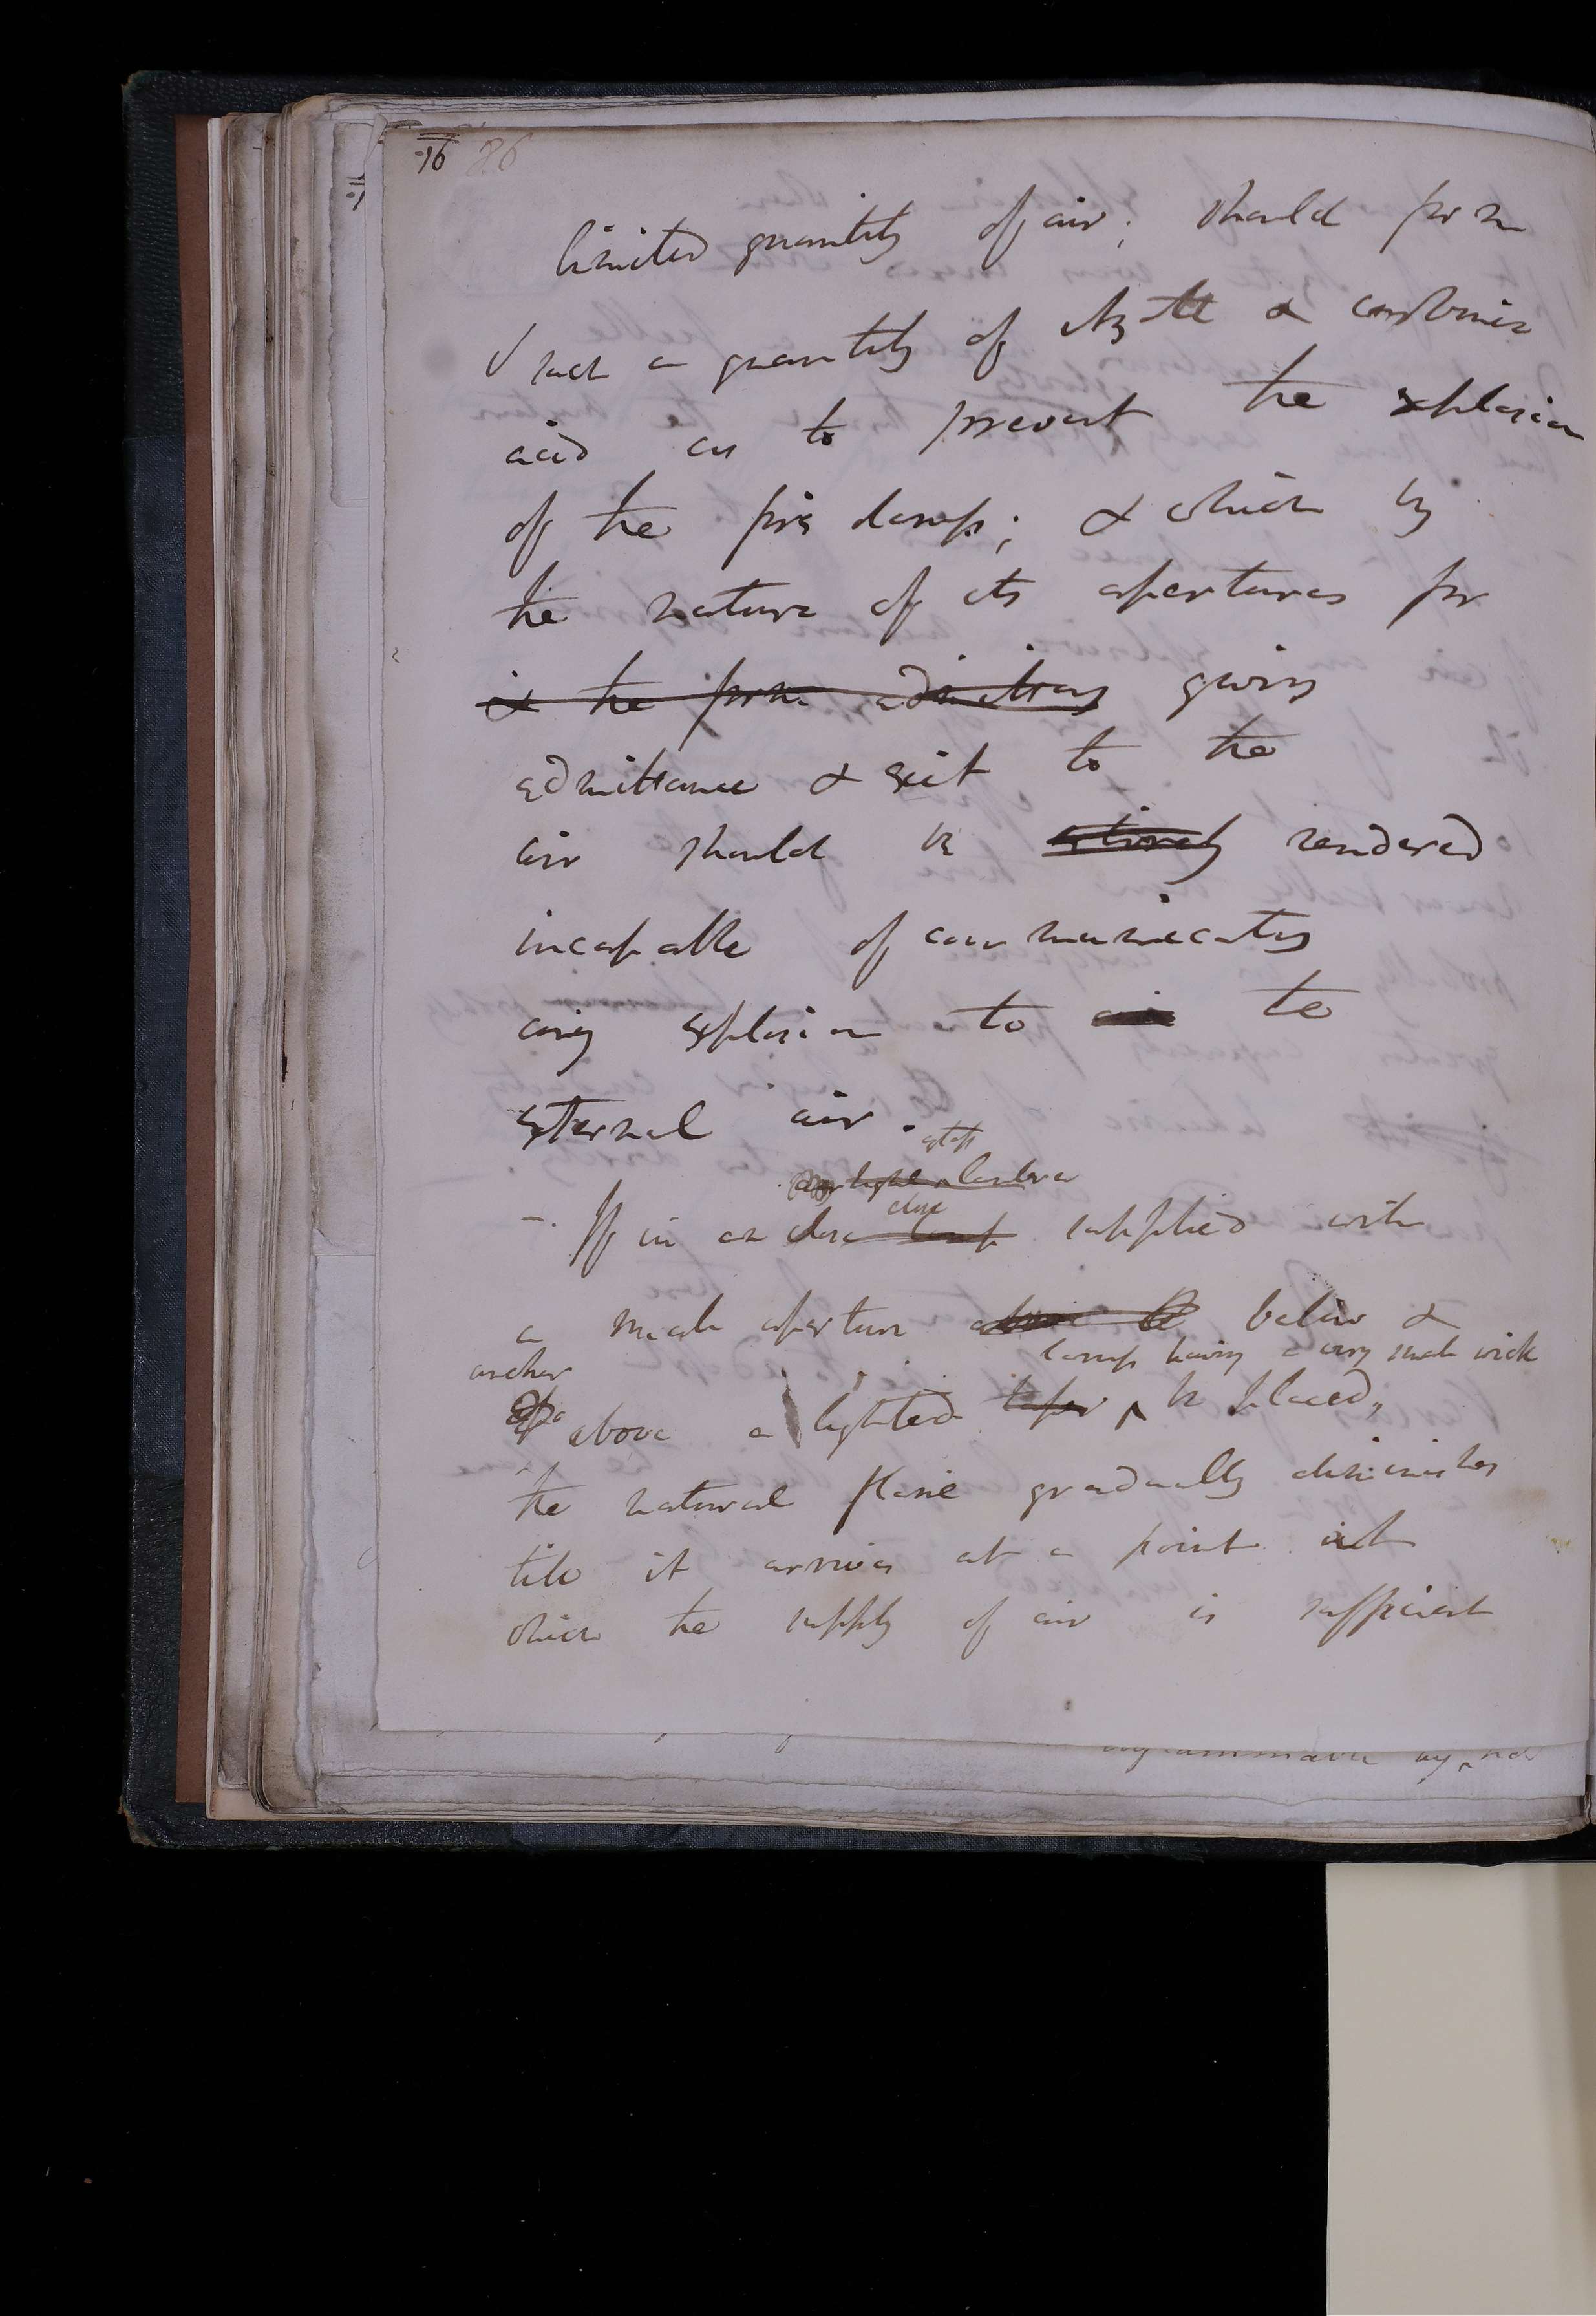 16 86
limited quantity of air; should form
such a quantity of Azote & carbonic
acid as to prevent the explosion
of the fire damp; & which by
the nature of its apertures for
& the form admitting giving
admittance & exit to the
air should be entirely rendered
incapable of communicating
any explosion to the
external air.
lanthorn
close
- If in a close lamp supplied with
a small aperture above below &
lamp having a very small wick
another
above a lighted taper ^ be placed,
the natural flame gradually diminishes
till it arrives at a point at
which the supply of air is sufficient